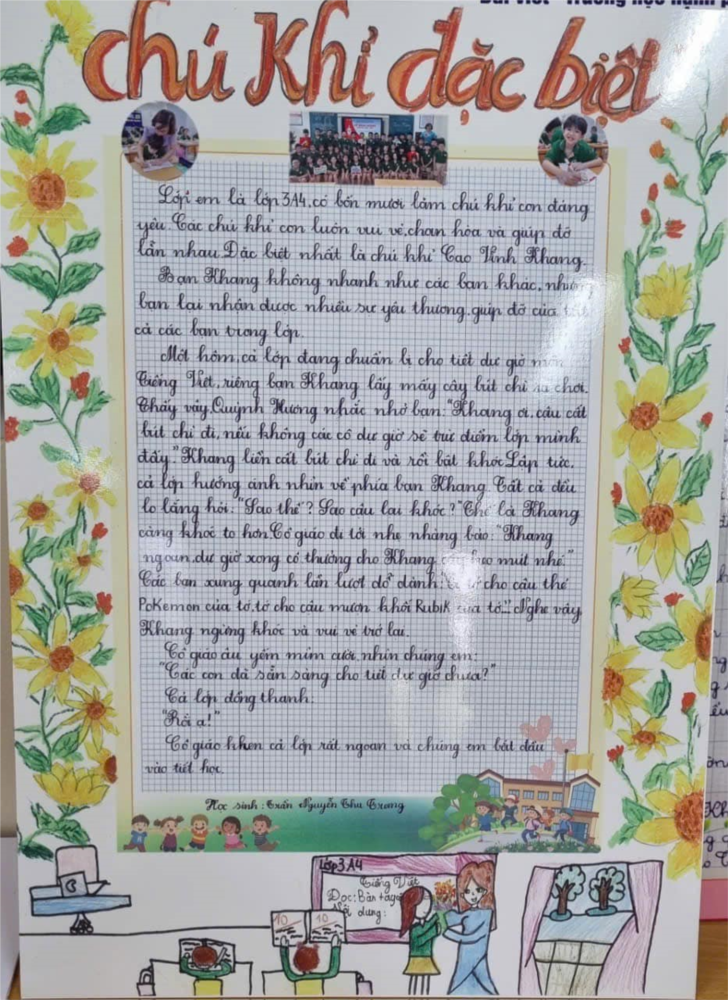 Bài viết "Trường học hạnh
chú Khỉ đặc biệt
Lớp em là lớp 3A4, có bốn mươi lăm chú khỉ con đáng
yêu. Các chú khỉ con luôn vui vẻ, chan hòa và giúp đỡ
lẫn nhau. Đặc biệt nhất là chú khỉ Cao Vĩnh Khang.
Bạn Khang không nhanh như các bạn khác, nhưng
bạn lại nhận được nhiều sự yêu thương, giúp đỡ của tất
cả các bạn trong lớp.
Một hôm, cả lớp đang chuẩn bị cho tiết dự giờ môn
Tiếng Việt, riêng bạn Khang lấy mấy cây bút chì ra chơi.
Thấy vậy, Quỳnh Hương nhắc nhở bạn: "Khang ơi, cậu cất
bút chì đi, nếu không các cô dự giờ sẽ trừ điểm lớp mình
đấy." Khang liền cất bút chì đi và rồi bật khóc. Lập tức,
cả lớp hướng ánh nhìn về phía bạn Khang. Tất cả đều
lo lắng hỏi: "Sao thế? Sao cậu lại khóc?" Thế là Khang
càng khóc to hơn. Cô giáo đi tới nhẹ nhàng bảo: "Khang
ngoan, dự giờ xong cô thưởng cho Khang kẹo mút nhé."
Các bạn xung quanh lần lượt dỗ dành: tớ cho cậu thẻ
PoKemon của tớ, tớ cho cậu mượn khối Rubik của tớ... Nghe vậy,
Khang ngừng khóc và vui vẻ trở lại.
Cô giáo âu yếm mỉm cười, nhìn chúng em:
"Các con đã sẵn sàng cho tiết dự giờ chưa?"
Cả lớp đồng thanh:
"Rồi ạ!"
Cô giáo khen cả lớp rất ngoan và chúng em bắt đầu
vào tiết học.
Học sinh: Trần Nguyễn Thu Trang
Lớp 3A4
Tiếng Việt
Đọc: Bàn tay
Nội dung:
10 10